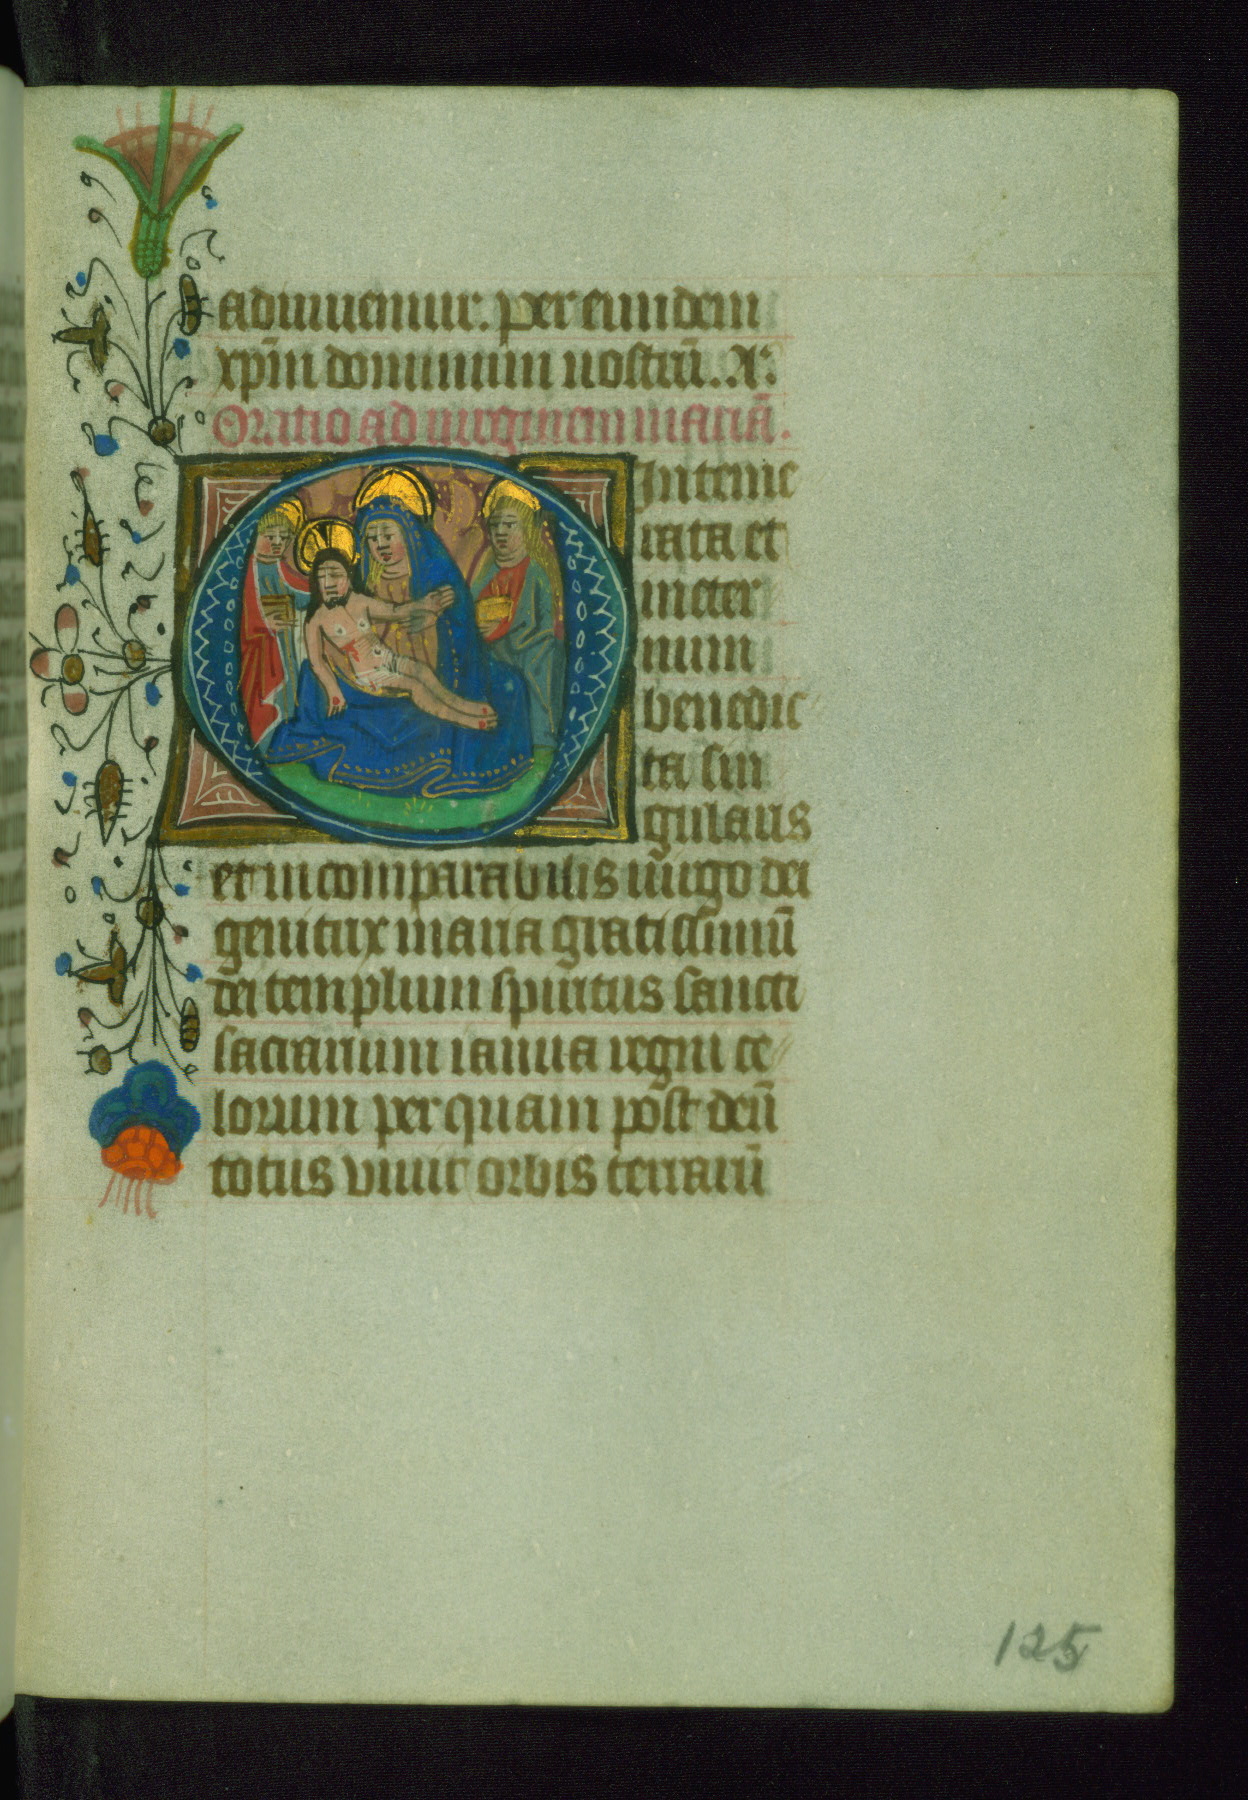 adiuuemur. per eundem
xp̄m dominum nostrū. A:
Oratio ad uirginem mariā.
O Inteme
rata et
ineter
num
benedic
ta sin
gularis
et incomparabilis uirgo dei
genitrix maria gratissimū
dei templum spiritus sancti
sacrarium ianua regni ce
lorum per quam post deū
totus viuit orbis terrarū
125